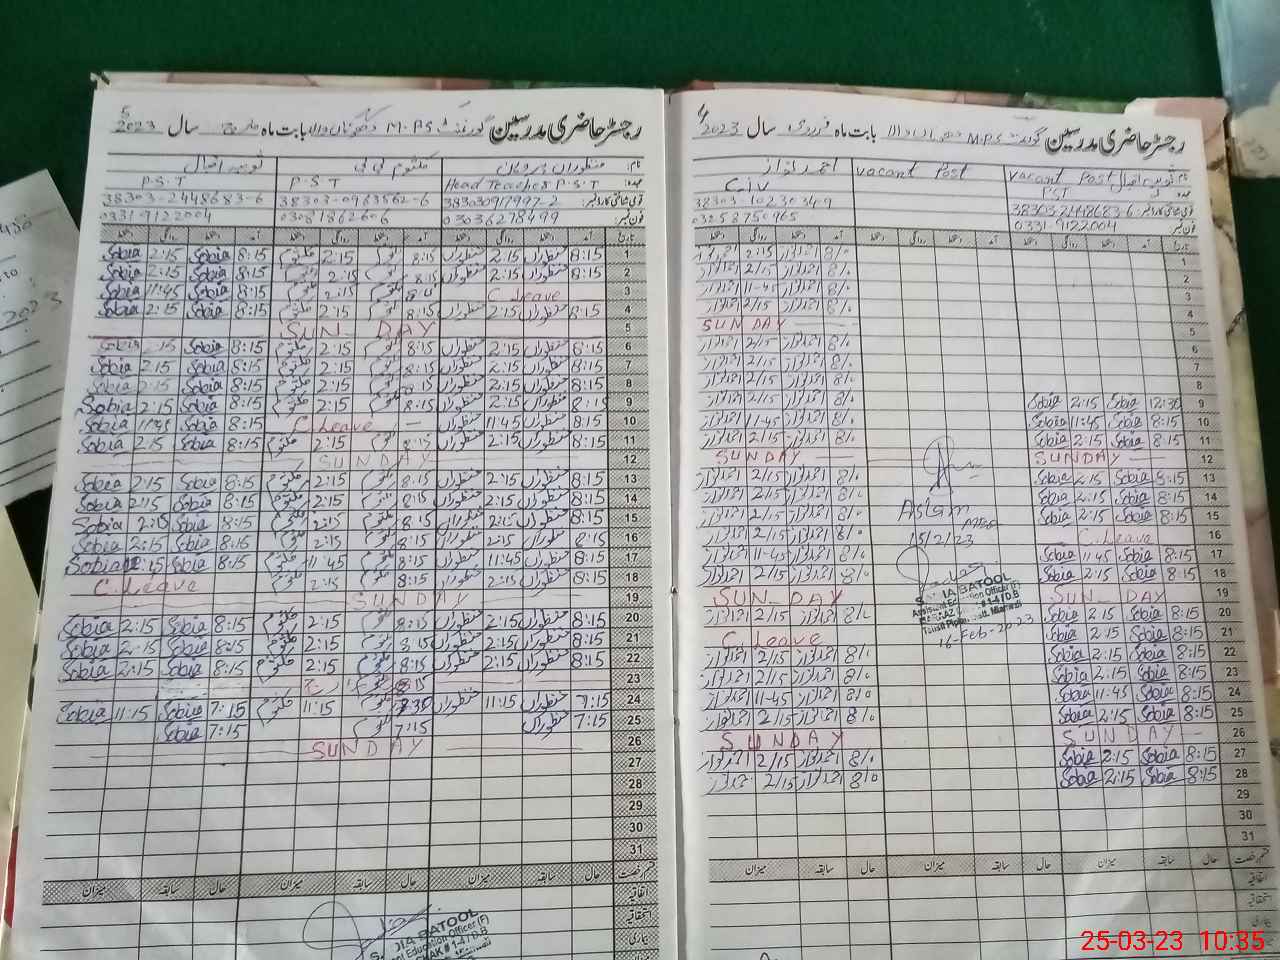 رجسٹر حاضری مدرسین گورنمنٹ M.P.S بابت ماہ مارچ سال 2023
5
نام:
عہدہ: Head Teacher P.S.T P.S.T P.S.T
قومی شناختی کارڈ نمبر: 38303-0963562-6 38303-2448683-6
فون نمبر: 03036278499 03081862606 0331-9122004
تاریخ آمد دستخط روانگی دستخط آمد دستخط روانگی دستخط آمد دستخط روانگی دستخط
1 8:15 منظوراں 2:15 منظوراں 8:15 کلثوم 2:15 کلثوم 8:15 Sobia 2:15 Sobia
2 8:15 منظوراں 2:15 منظوراں 8:15 کلثوم 2:15 کلثوم 8:15 Sobia 2:15 Sobia
3 C.Leave کلثوم 2:15 کلثوم 8:15 Sobia 11:45 Sobia
4 8:15 منظوراں 2:15 منظوراں 8:15 کلثوم 2:15 کلثوم 8:15 Sobia 2:15 Sobia
5 SUN-DAY
6 8:15 منظوراں 2:15 منظوراں 8:15 کلثوم 2:15 کلثوم 8:15 Sobia 2:15 Sobia
7 8:15 منظوراں 2:15 منظوراں 8:15 کلثوم 2:15 کلثوم 8:15 Sobia 2:15 Sobia
8 8:15 منظوراں 2:15 منظوراں 8:15 کلثوم 2:15 کلثوم 8:15 Sobia 2:15 Sobia
9 8:15 منظوراں 2:15 منظوراں 8:15 کلثوم 2:15 کلثوم 8:15 Sobia 2:15 Sobia
10 8:15 منظوراں 11:45 منظوراں C.Leave 8:15 Sobia 11:45 Sobia
11 8:15 منظوراں 2:15 منظوراں 8:15 کلثوم 2:15 کلثوم 8:15 Sobia 2:15 Sobia
12 SUNDAY
13 8:15 منظوراں 2:15 منظوراں 8:15 کلثوم 2:15 کلثوم 8:15 Sobia 2:15 Sobia
14 8:15 منظوراں 2:15 منظوراں 8:15 کلثوم 2:15 کلثوم 8:15 Sobia 2:15 Sobia
15 8:15 منظوراں 2:15 منظوراں 8:15 کلثوم 2:15 کلثوم 8:15 Sobia 2:15 Sobia
16 8:15 منظوراں 2:15 منظوراں 8:15 کلثوم 2:15 کلثوم 8:15 Sobia 2:15 Sobia
17 8:15 منظوراں 11:45 منظوراں 8:15 کلثوم 11:45 کلثوم 8:15 Sobia Sobia
18 8:15 منظوراں 2:15 منظوراں 8:15 کلثوم 2:15 کلثوم C.Leave
19 SUNDAY
20 8:15 منظوراں 2:15 منظوراں 8:15 کلثوم 2:15 کلثوم 8:15 Sobia 2:15 Sobia
21 8:15 منظوراں 2:15 منظوراں 8:15 کلثوم 2:15 کلثوم 8:15 Sobia 2:15 Sobia
22 8:15 منظوراں 2:15 منظوراں 8:15 کلثوم 2:15 کلثوم 8:15 Sobia 2:15 Sobia
23
24 7:15 منظوراں 11:15 منظوراں 7:30 کلثوم 11:15 کلثوم 7:15 Sobia 11:15 Sobia
25 7:15 منظوراں 7:15 کلثوم 7:15 Sobia
26 SUNDAY
27
28
29
30
31
قسم رخصت حال سابقہ میزان حال سابقہ میزان حال سابقہ میزان
اتفاقیہ
استحقاقیہ
بیماری
IA BATOOL
Education Officer (F)
CHAK # 1-4/D.B
رجسٹر حاضری مدرسین گورنمنٹ M.P.S بابت ماہ فروری سال 2023
4
نام: vacant Post vacant Post احمد نواز
عہدہ: PST C-iv
قومی شناختی کارڈ نمبر: 38303-2448683-6 38303-1023034-9
فون نمبر: 0331-9122004 03258750965
تاریخ آمد دستخط روانگی دستخط آمد دستخط روانگی دستخط آمد دستخط روانگی دستخط
1 8/0 احمد نواز 2:15 احمد نواز
2 8/0 احمد نواز 2/15 احمد نواز
3 8/0 احمد نواز 11-45 احمد نواز
4 8/0 احمد نواز 2/15 احمد نواز
5 SUNDAY
6 8/0 احمد نواز 2/15 احمد نواز
7 8/0 احمد نواز 2/15 احمد نواز
8 8/0 احمد نواز 2/15 احمد نواز
9 12:30 Sobia 2:15 Sobia 8/0 احمد نواز 2/15 احمد نواز
10 8:15 Sobia 11:45 Sobia 8/0 احمد نواز 11-45 احمد نواز
11 8:15 Sobia 2:15 Sobia 8/0 احمد نواز 2/15 احمد نواز
12 SUNDAY SUNDAY
13 8:15 Sobia 2:15 Sobia 8/0 احمد نواز 2/15 احمد نواز
14 8:15 Sobia 2:15 Sobia 8/0 احمد نواز 2/15 احمد نواز
15 8:15 Sobia 2:15 Sobia 8/0 احمد نواز 2/15 احمد نواز
16 C.Leave 8/0 احمد نواز 2/15 احمد نواز
17 8:15 Sobia 11:45 Sobia 8/0 احمد نواز 11-45 احمد نواز
18 8:15 Sobia 2:15 Sobia 8/0 احمد نواز 2/15 احمد نواز
19 SUN-DAY SUN-DAY
20 8:15 Sobia 2:15 Sobia 8/0 احمد نواز 2/15 احمد نواز
21 8:15 Sobia 2:15 Sobia C.Leave
22 8:15 Sobia 2:15 Sobia 8/0 احمد نواز 2/15 احمد نواز
23 8:15 Sobia 2:15 Sobia 8/0 احمد نواز 2/15 احمد نواز
24 8:15 Sobia 11:45 Sobia 8/0 احمد نواز 11-45 احمد نواز
25 8:15 Sobia 2:15 Sobia 8/0 احمد نواز 2/15 احمد نواز
26 SUNDAY SUNDAY
27 8:15 Sobia 2:15 Sobia 8/0 احمد نواز 2/15 احمد نواز
28 8:15 Sobia 2:15 Sobia 8/0 احمد نواز 2/15 احمد نواز
29
30
31
Aslam
15/2/23
BATOOL
Education Officer (F)
# 1-4/D.B
16-Feb-2023
قسم رخصت حال سابقہ میزان حال سابقہ میزان حال سابقہ میزان
اتفاقیہ
استحقاقیہ
بیماری
2023
25-03-23 10:35